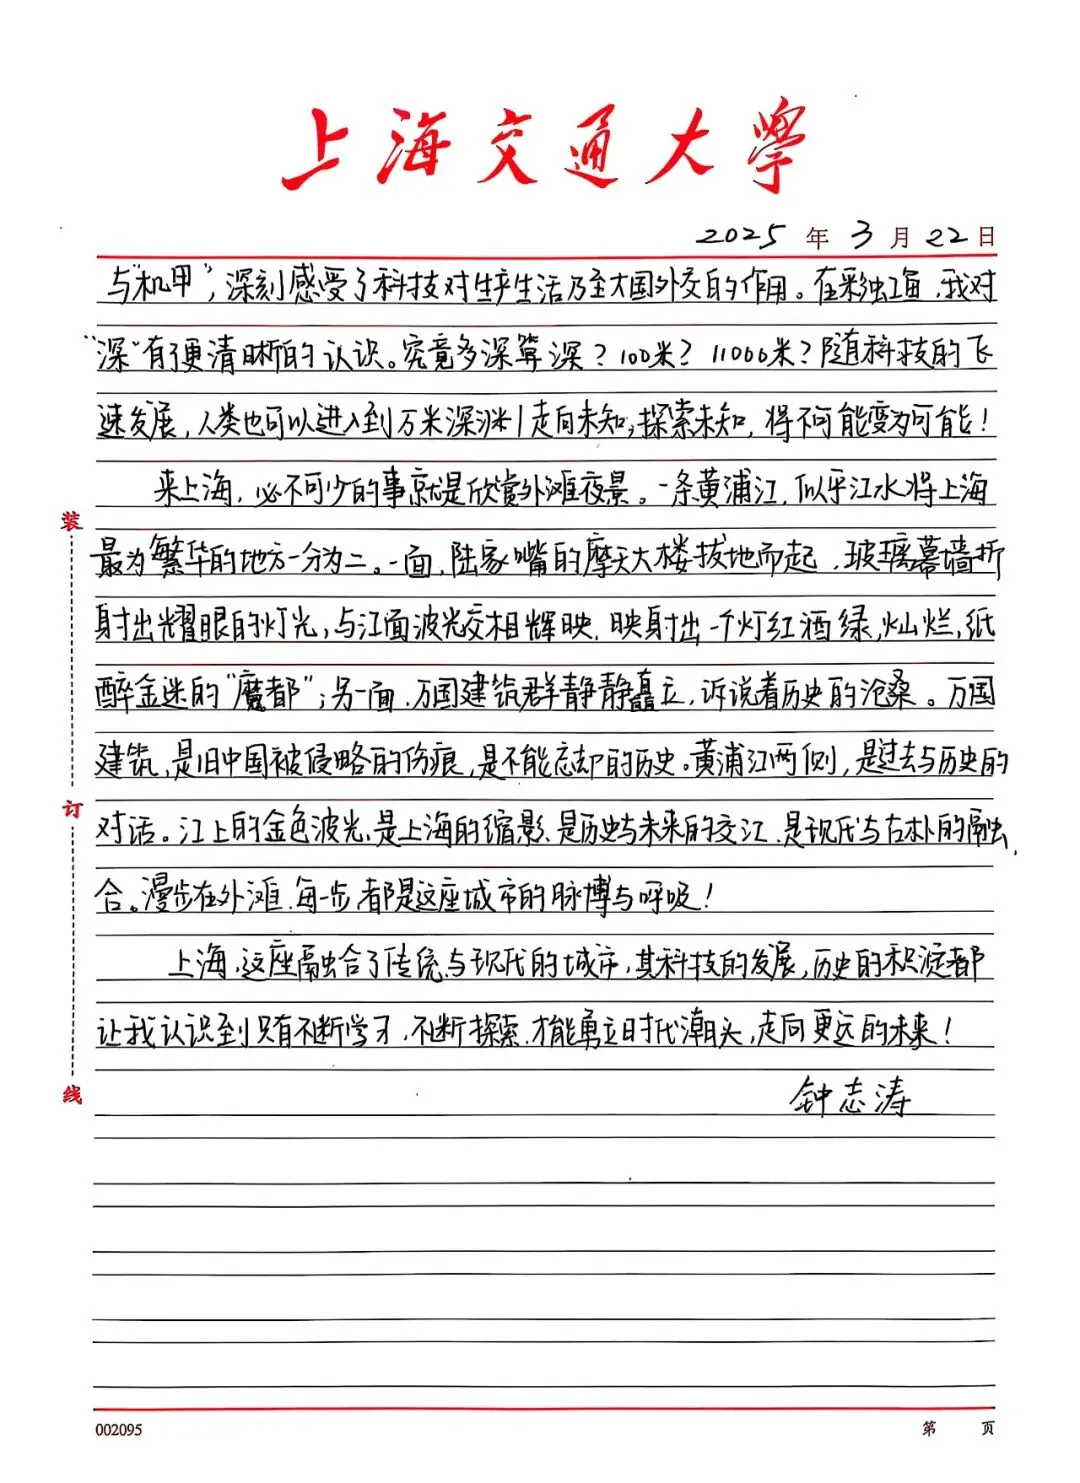 上海交通大學
2025 年 3 月 22 日
与“机甲”，深刻感受了科技对生产生活乃至大国外交的作用。在彩虹海，我对
“深”有了更清晰的认识。究竟多深算深？100米？11000米？随科技的飞
速发展，人类也可以进入到万米深渊！走向未知，探索未知，将不可能变为可能！
来上海，必不可少的事就是欣赏外滩夜景。一条黄浦江，似乎江水将上海
最为繁华的地方一分为二。一面，陆家嘴的摩天大楼拔地而起，玻璃幕墙折
射出耀眼的灯光，与江面波光交相辉映，映射出一个灯红酒绿，灿烂，纸
醉金迷的“魔都”；另一面，万国建筑群静静矗立，诉说着历史的沧桑。万国
建筑，是旧中国被侵略的伤痕，是不能忘却的历史。黄浦江两侧，是过去与历史的
对话。江上的金色波光，是上海的缩影，是历史与未来的交汇，是现代与古朴的融
合。漫步在外滩，每一步都是这座城市的脉搏与呼吸！
上海，这座融合了传统与现代的城市，其科技的发展，历史的积淀都
让我认识到只有不断学习，不断探索，才能勇立时代潮头，走向更远的未来！
钟志涛
装
订
线
002095
第 页